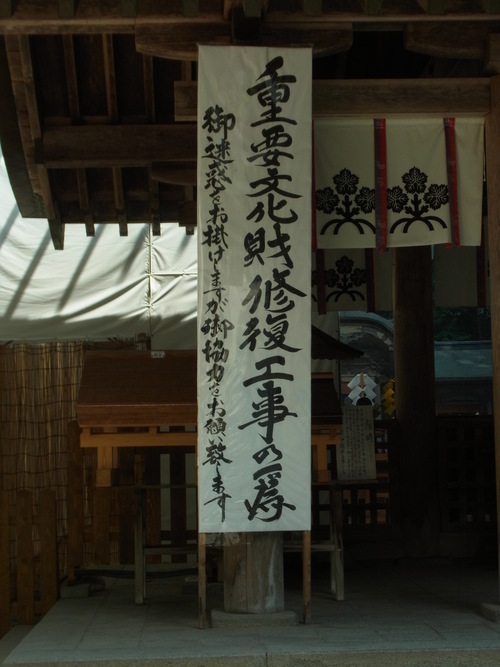 重要文化財修復工事の為
御迷惑をお掛けしますが御協力をお願い致します